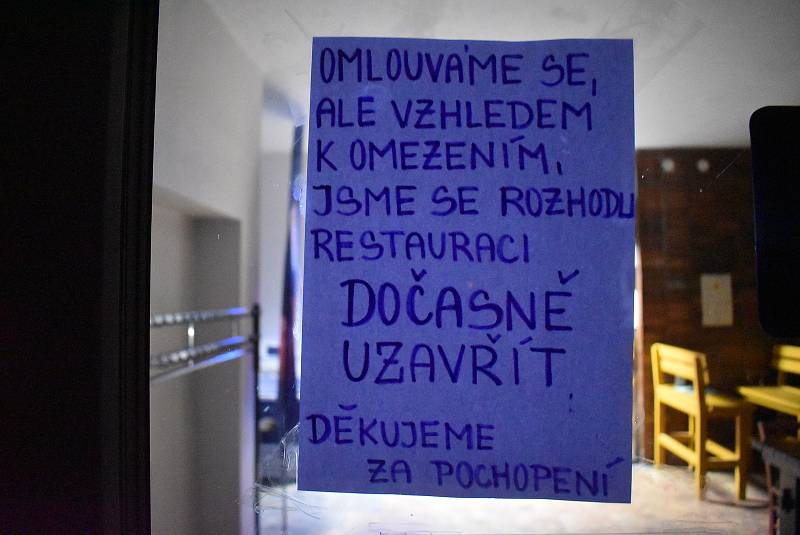 OMLOUVÁME SE,
ALE VZHLEDEM
K OMEZENÍM,
JSME SE ROZHODLI
RESTAURACI
DOČASNĚ
UZAVŘÍT.
DĚKUJEME
ZA POCHOPENÍ